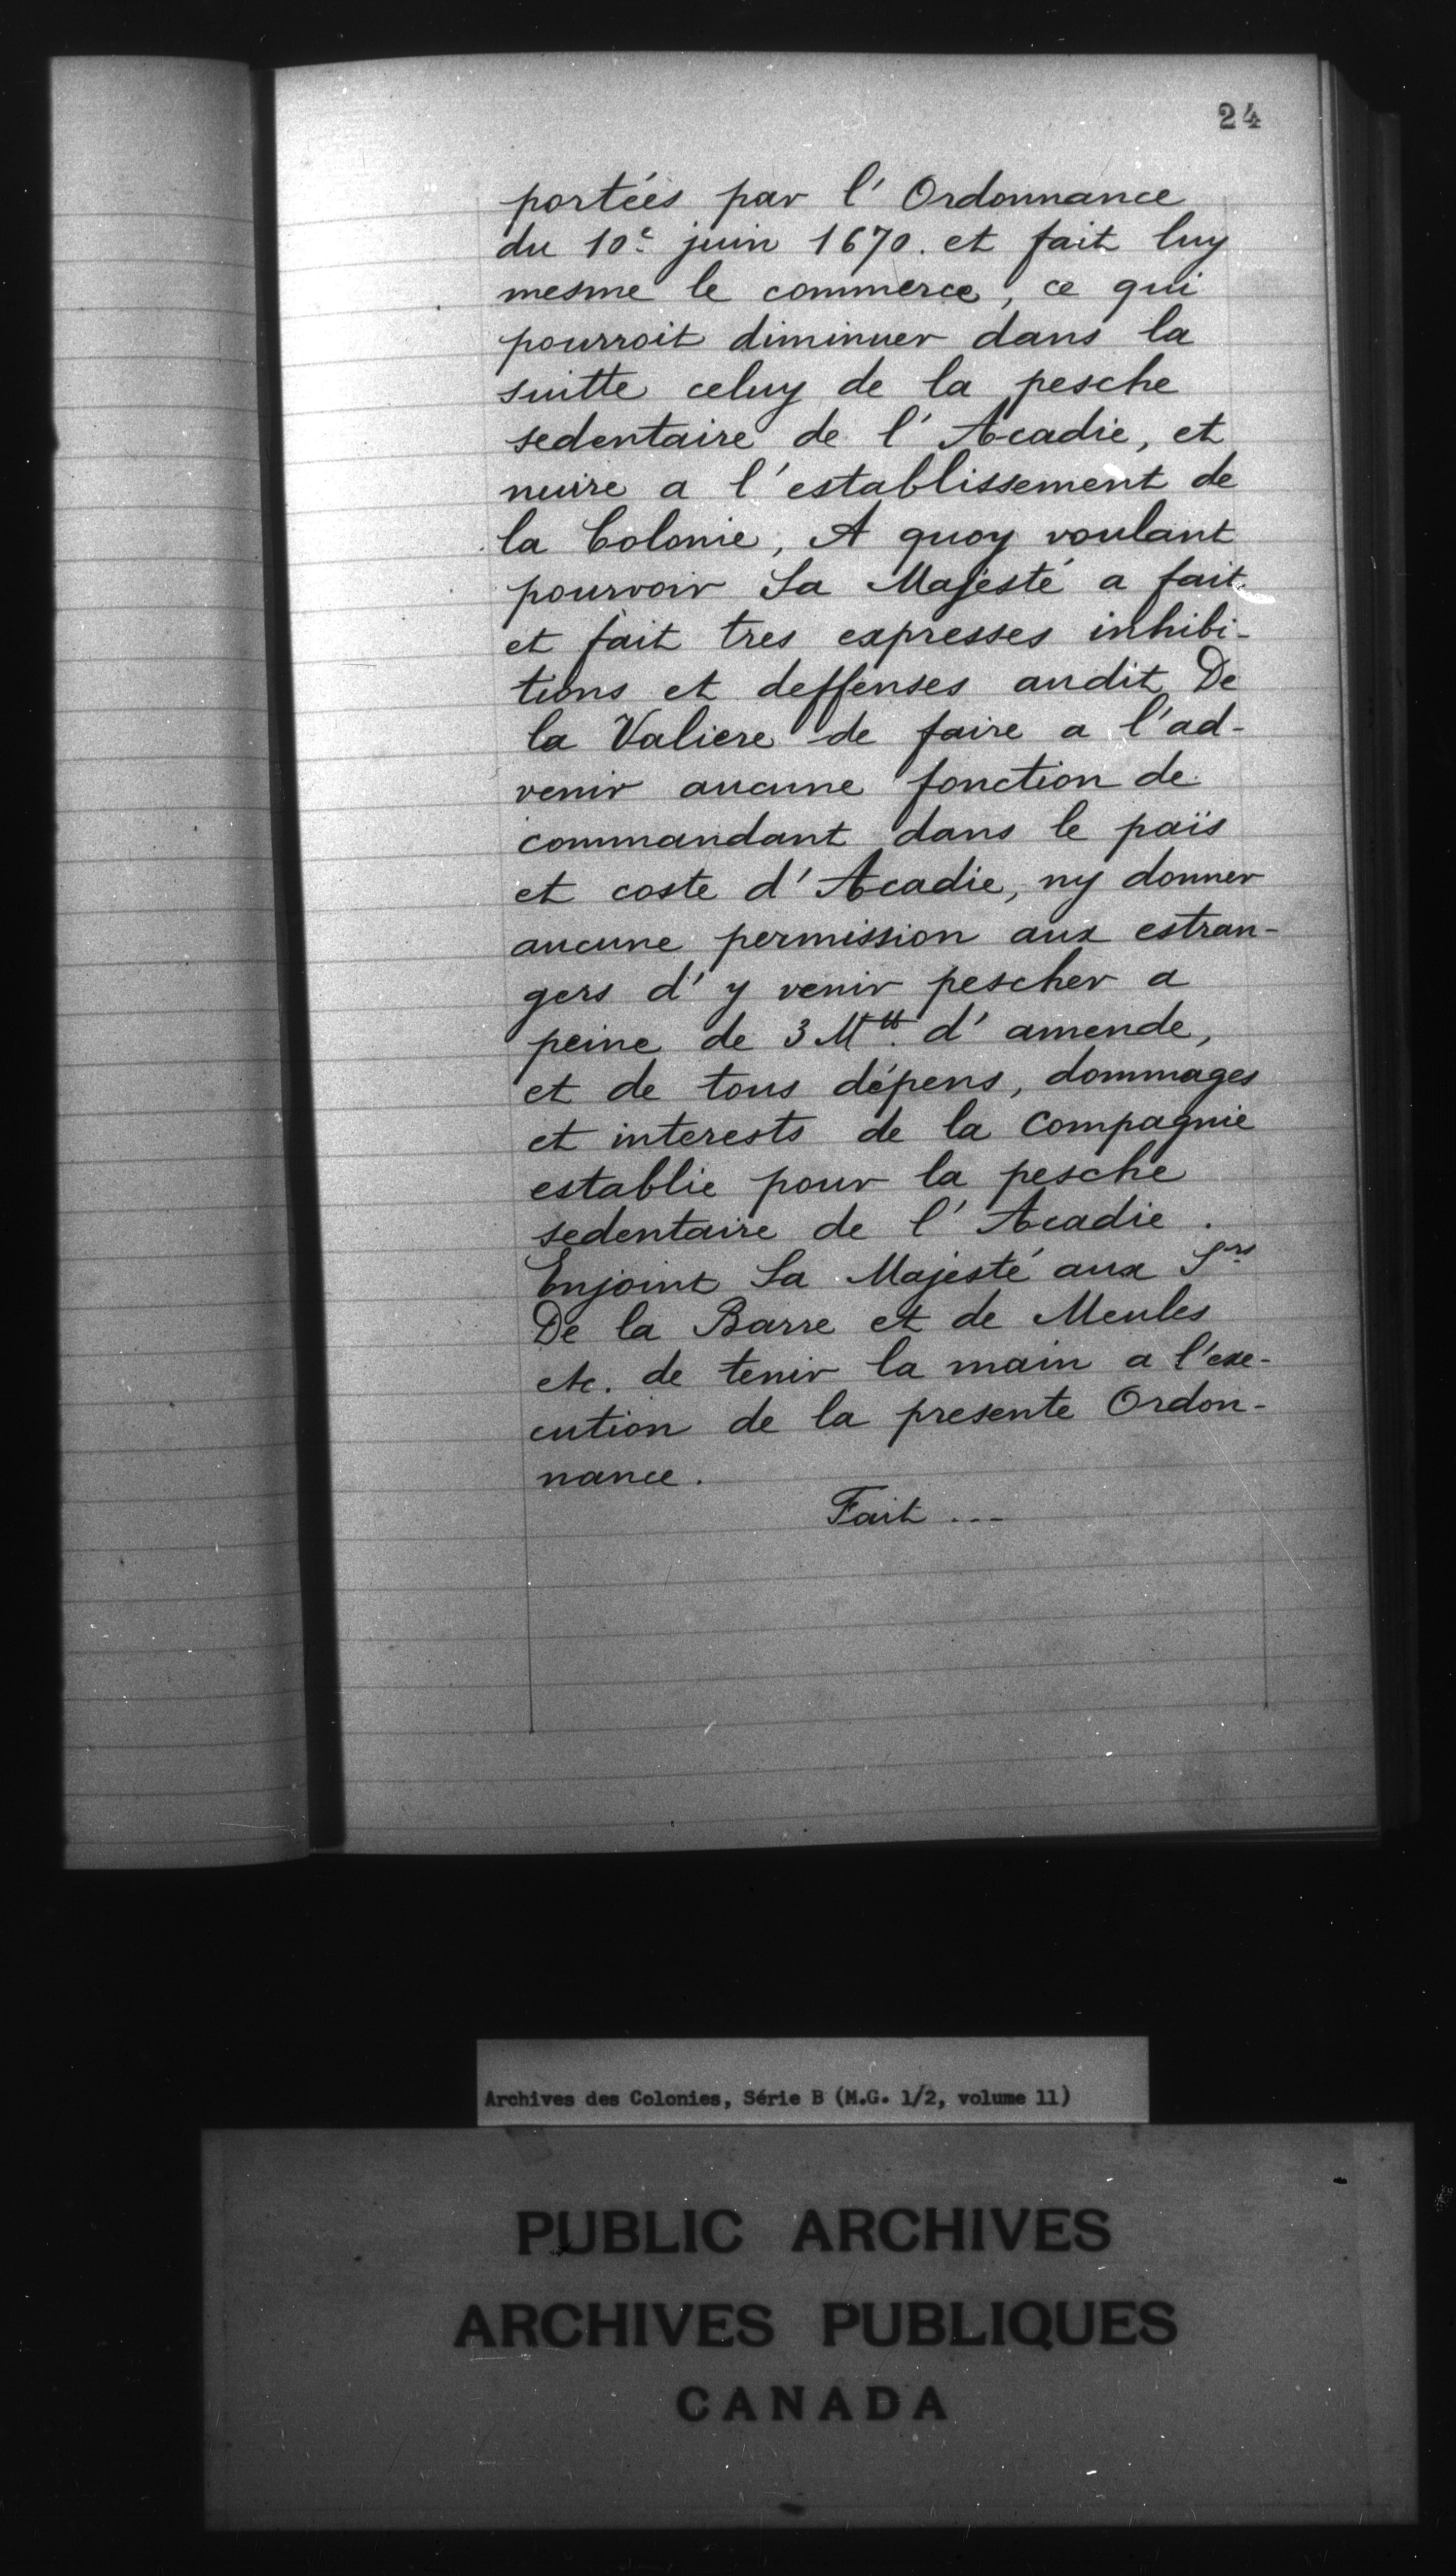 24
portées par l' Ordonnance
du 10e juin 1670. et fait luy
mesme le commerce, ce qui
pourroit diminuer dans la
suitte celuy de la pesche
sedentaire de l' Acadie, et
nuire a l'establissement de
la Colonie, A quoy voulant
pourvoir Sa Majesté a fait
et fait tres expresses inhibi-
tions et deffenses audit De
la Valiere de faire a l'ad-
venir aucune fonction de
commandant dans le païs
et coste d' Acadie, ny donner
aucune permission aux estran-
gers d' y venir pescher a
peine de 3 M tt. d' amende,
et de tous dépens, dommages
et interests de la Compagnie
establie pour la pesche
sedentaire de l' Acadie.
Enjoint Sa Majesté aux Srs
De la Barre et de Meules
etc. de tenir la main a l'exe-
cution de la presente Ordon-
nance.
Fait ...
Archives des Colonies, Série B (M.G. 1/2, volume 11)
PUBLIC ARCHIVES
ARCHIVES PUBLIQUES
CANADA